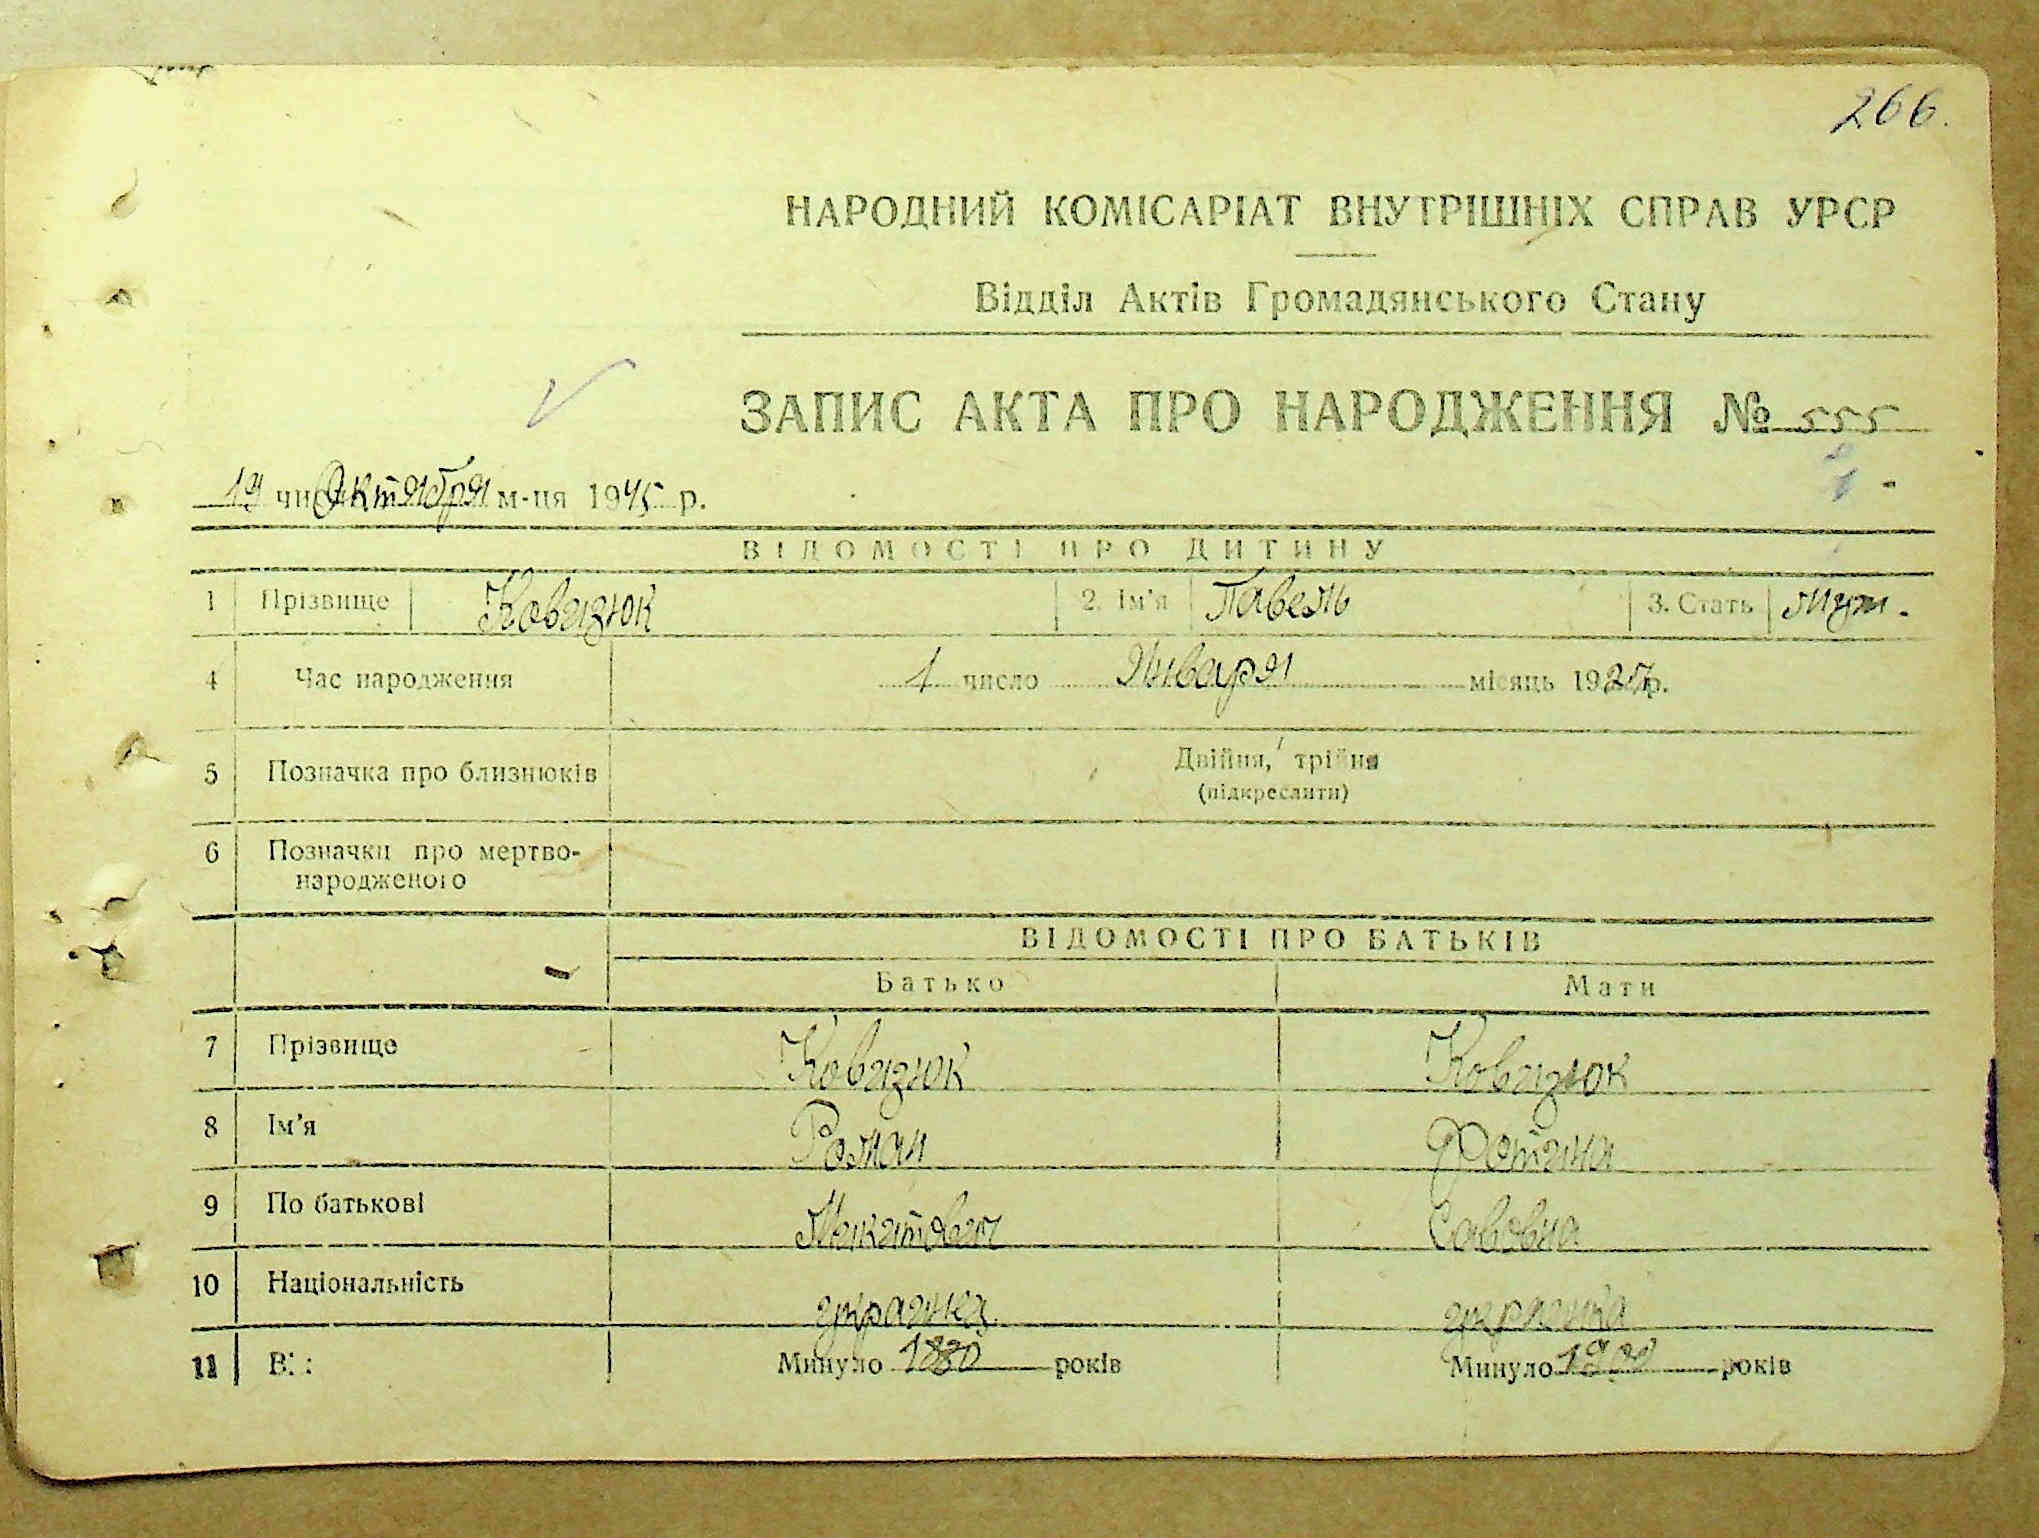 266.
НАРОДНИЙ КОМІСАРІАТ ВНУТРІШНІХ СПРАВ УРСР
Відділ Актів Громадянського Стану
ЗАПИС АКТА ПРО НАРОДЖЕННЯ № 555
19 число Октября м-ця 1945 р.
ВІДОМОСТІ ПРО ДИТИНУ
1 Прізвище Ковизюк 2. Ім'я Павель 3. Стать муж.
4 Час народження 1 число Января місяць 1925 р.
5 Позначка про близнюків Двійня, трійня
(підкреслити)
6 Позначки про мертво-
народженого
ВІДОМОСТІ ПРО БАТЬКІВ
Батько Мати
7 Прізвище Ковизюк Ковизюк
8 Ім'я Роман Фотина
9 По батькові Микитович Савовна
10 Національність украинец украинка
11 Минуло 1880 років Минуло 1900 років